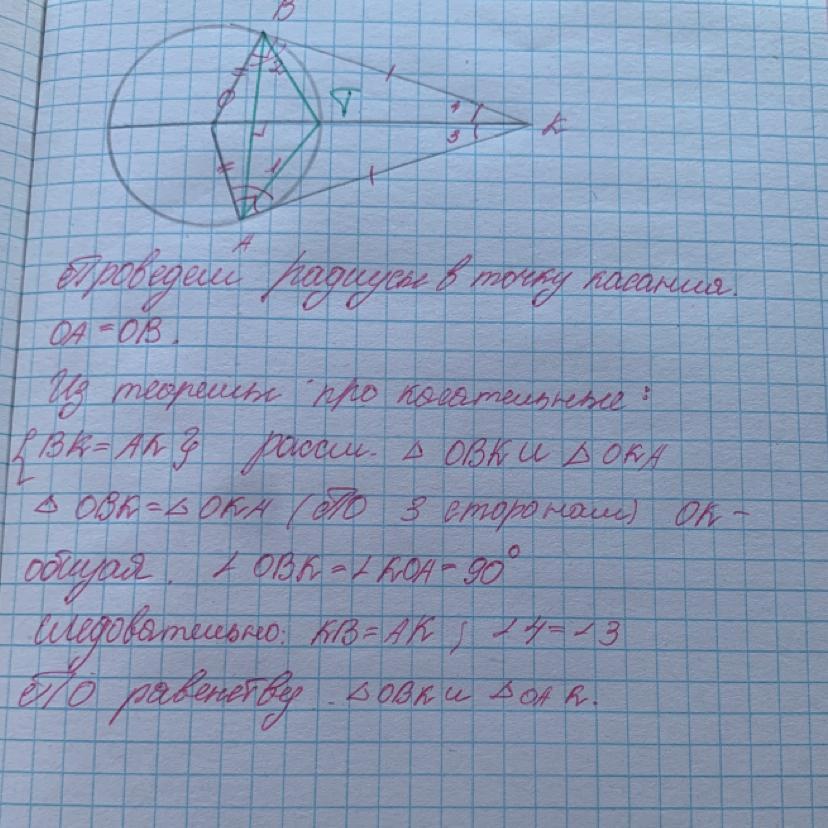 B
2
T
4
3
K
1
A
Проведем радиусы в точку касания.
OA = OB.
Из теоремы про касательные:
{BK = AK} рассм. △ OBK и △ OKA
△ OBK = △ OKA (по 3 сторонам) OK -
общая. ∠ OBK = ∠ KOA = 90°
следовательно: KB = AK ; ∠4 = ∠3
По равенству △OBK и △OAK.